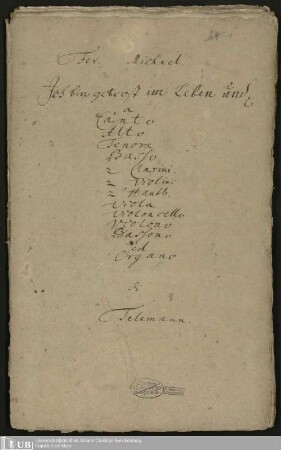 Fer. Michael.
Ich bin getrost im Leben und
a
Canto
Alto
Tenore
Basso
2 Clarini
2 Violin:
2 Hautb.
Viola
Violoncello
Violono
Bassono
ed
Organo
di
Telemann.
UB
Universitätsbibliothek Johann Christian Senckenberg
Frankfurt am Main